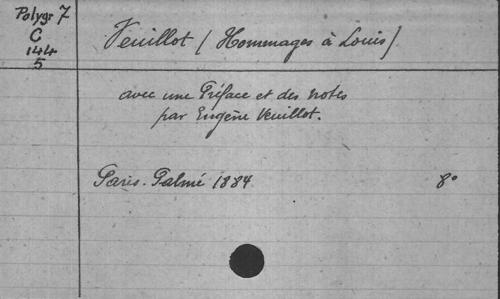 Polygr 7
C
144
5
Veuillot (Hommages à Louis)
avec une Préface et des notes
par Eugène Veuillot.
Paris. Palmé 1884 8°